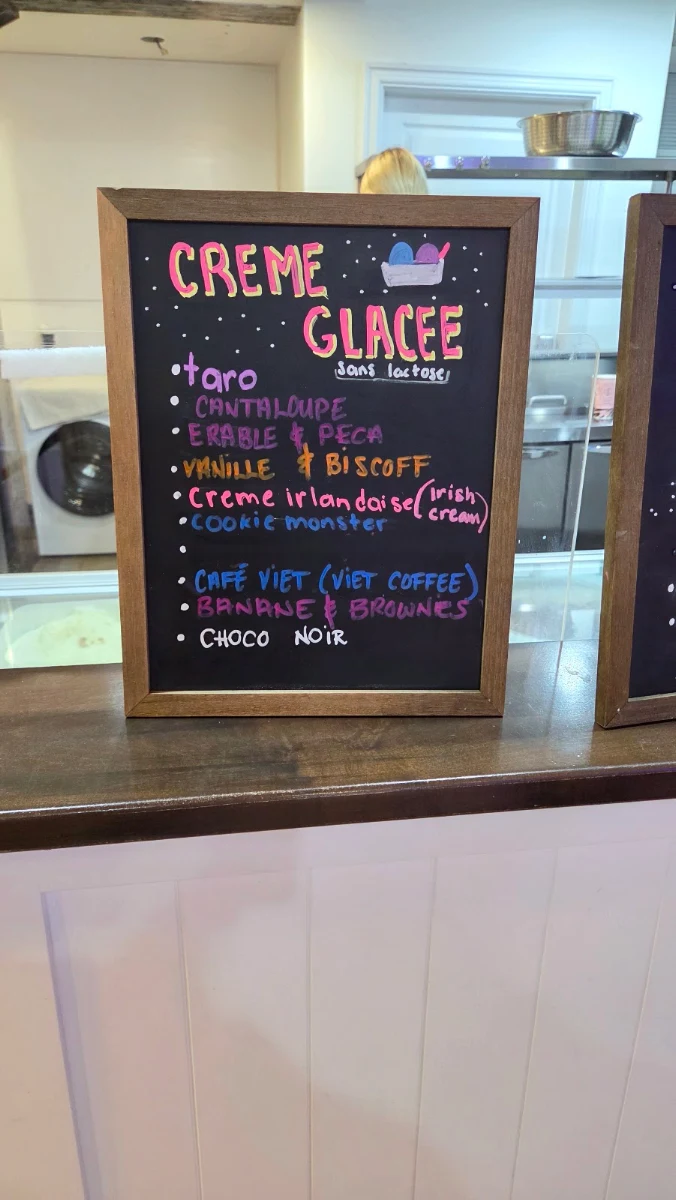 CREME
GLACEE
sans lactose
• taro
• CANTALOUPE
• ERABLE & PECA
• VANILLE & BISCOFF
• Creme irlandaise (irish cream)
• cookie monster
•
• CAFÉ VIET (VIET COFFEE)
• BANANE & BROWNIES
• CHOCO NOIR